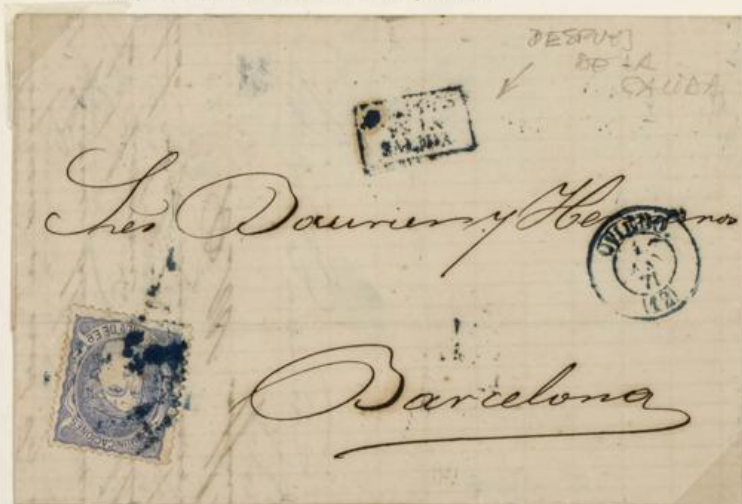 DESPUES
DE LA
SALIDA
DESPUES
DE LA
SALIDA
Sres Daurier y Hermanos
OVIEDO
71
(12)
COMUNICACIONES
Barcelona